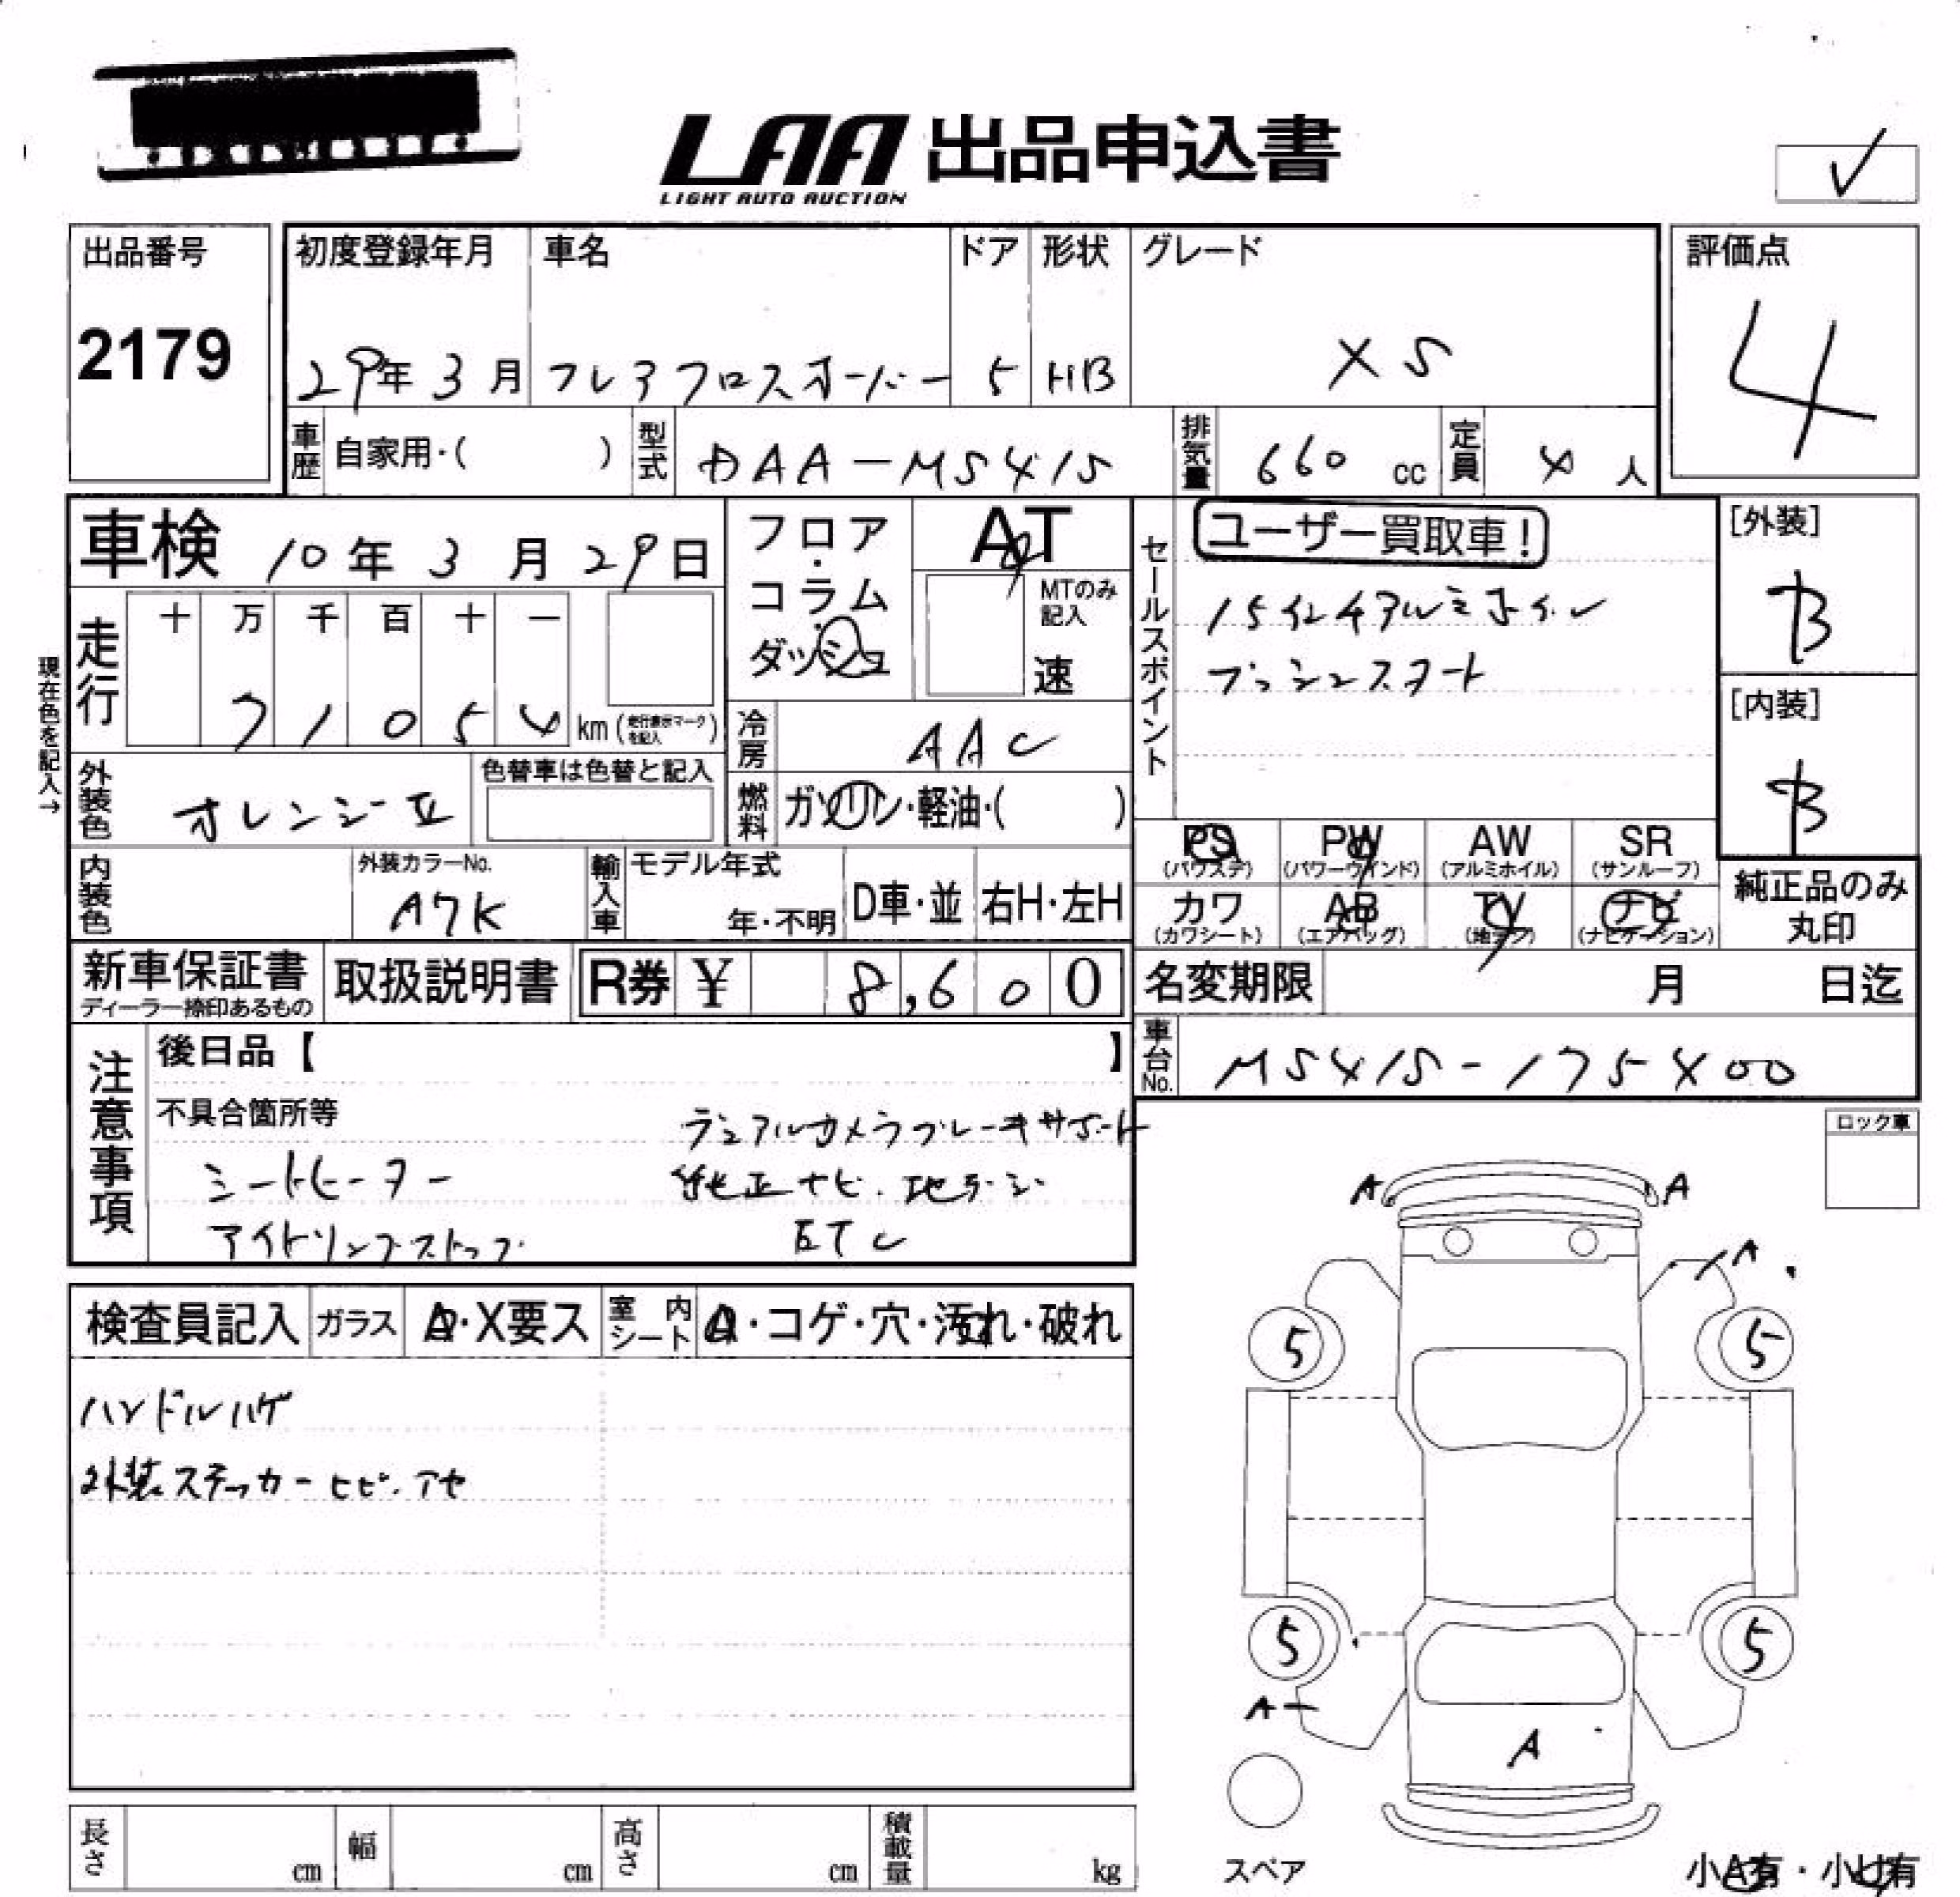 LAA 出品申込書
LIGHT AUTO AUCTION
✓
出品番号
2179
初度登録年月
29年 3 月
車名
フレアクロスオーバー
ドア
5
形状
HB
グレード
XS
評価点
4
車歴 自家用・( )
型式 DAA-MS41S
排気量 660 cc
定員 4 人
車検 10 年 3 月 29 日
フロア・コラム・ダッシュ
AT
MTのみ記入
速
セールスポイント
ユーザー買取車!
15インチアルミホイル
プッシュスタート
[外装]
B
[内装]
B
現在色を記入→
走行
十 万 千 百 十 一
7 1 0 5 4 km (走行表示マークを記入)
冷房 AAC
外装色 オレンジⅡ
色替車は色替と記入
燃料 ガソリン・軽油・( )
内装色
外装カラーNo.
A7K
輸入車
モデル年式
年・不明
D車・並
右H・左H
PS (パワステ)
PW (パワーウインド)
AW (アルミホイル)
SR (サンルーフ)
カワ (カワシート)
AB (エアバッグ)
TV (地デジ)
ナビ (ナビゲーション)
純正品のみ丸印
新車保証書
ディーラー捺印あるもの
取扱説明書
R券 ¥ 8,600
名変期限 月 日迄
車台No. MS41S-175400
注意事項
後日品【 】
不具合箇所等
デュアルカメラブレーキサポート
シートヒーター
純正ナビ・地デジ
アイドリングストップ
ETC
ロック車
検査員記入
ガラス A・X要ス
室内シート A・コゲ・穴・汚れ・破れ
ハンドルハゲ
外装ステッカーヒビ・アセ
A A
A
5 5
5 5
A
A
スペア
長さ cm
幅 cm
高さ cm
積載量 kg
小A有・小U有